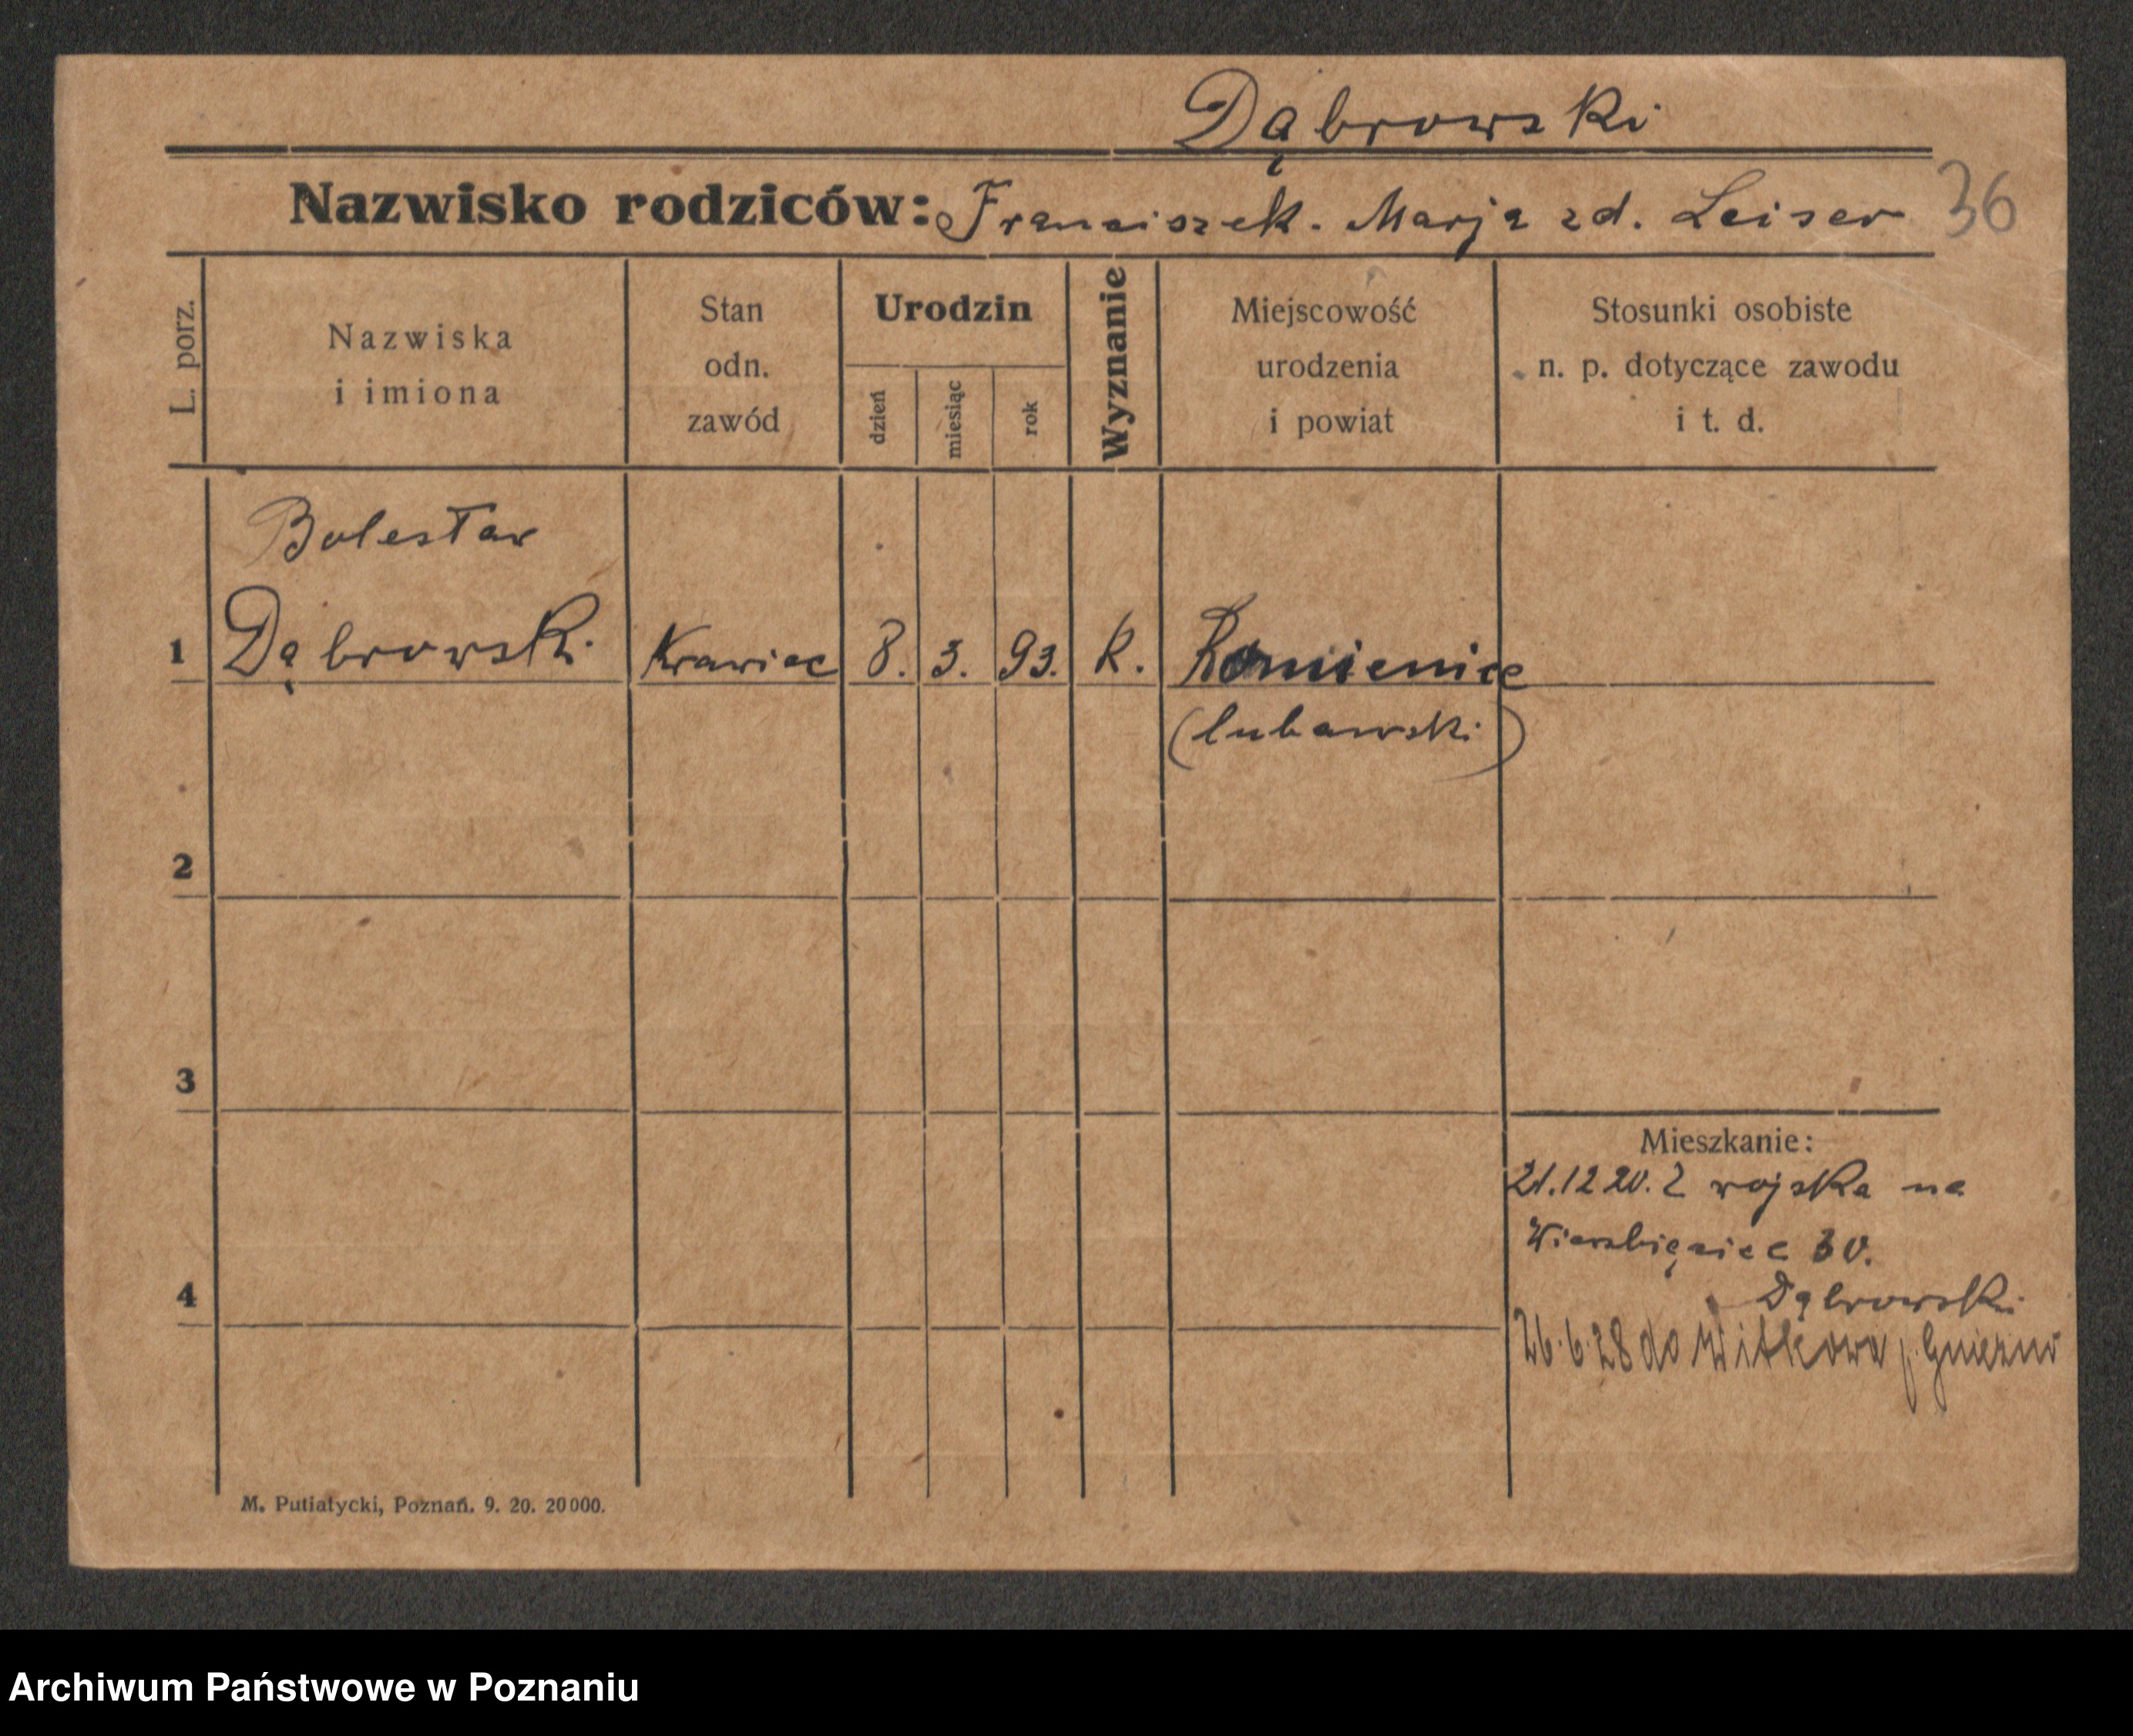 Dąbrowski
Nazwisko rodziców: Franciszek. Marja zd. Leiser
36
L. porz.
Nazwiska
i imiona
Stan
odn.
zawód
Urodzin
dzień
miesiąc
rok
Wyznanie
Miejscowość
urodzenia
i powiat
Stosunki osobiste
n. p. dotyczące zawodu
i t. d.
Bolesław
1 Dąbrowski Krawiec 8. 3. 93. k.
(lubawski)
2
3
Mieszkanie:
21.12 20. Z wojska na
Wierzbięcice 30.
Dąbrowski
4
26.6.28 do Witkowa p. Gniezno
M. Putiatycki, Poznań. 9. 20. 20000.
Archiwum Państwowe w Poznaniu